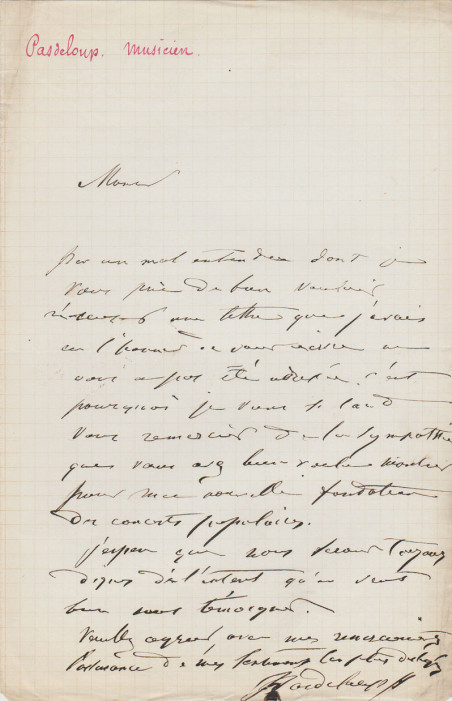 Pasdeloup. musicien.
Monsieur
Par un mal entendu dont je
vous prie de bien vouloir
m'excuser une lettre que j'avais
eu l'honneur de vous écrire ne
vous a pas été adressée. c'est
pourquoi je viens si tard
vous remercier de la sympathie
que vous avez bien voulu montrer
pour ma nouvelle fondation
des concerts populaires.
J'espère que nous serons toujours
dignes de l'intérêt qu'on veut
bien nous témoigner.
Veuillez agréer avec mes remerciements
l'assurance de mes sentiments les plus distingués
J Pasdeloup